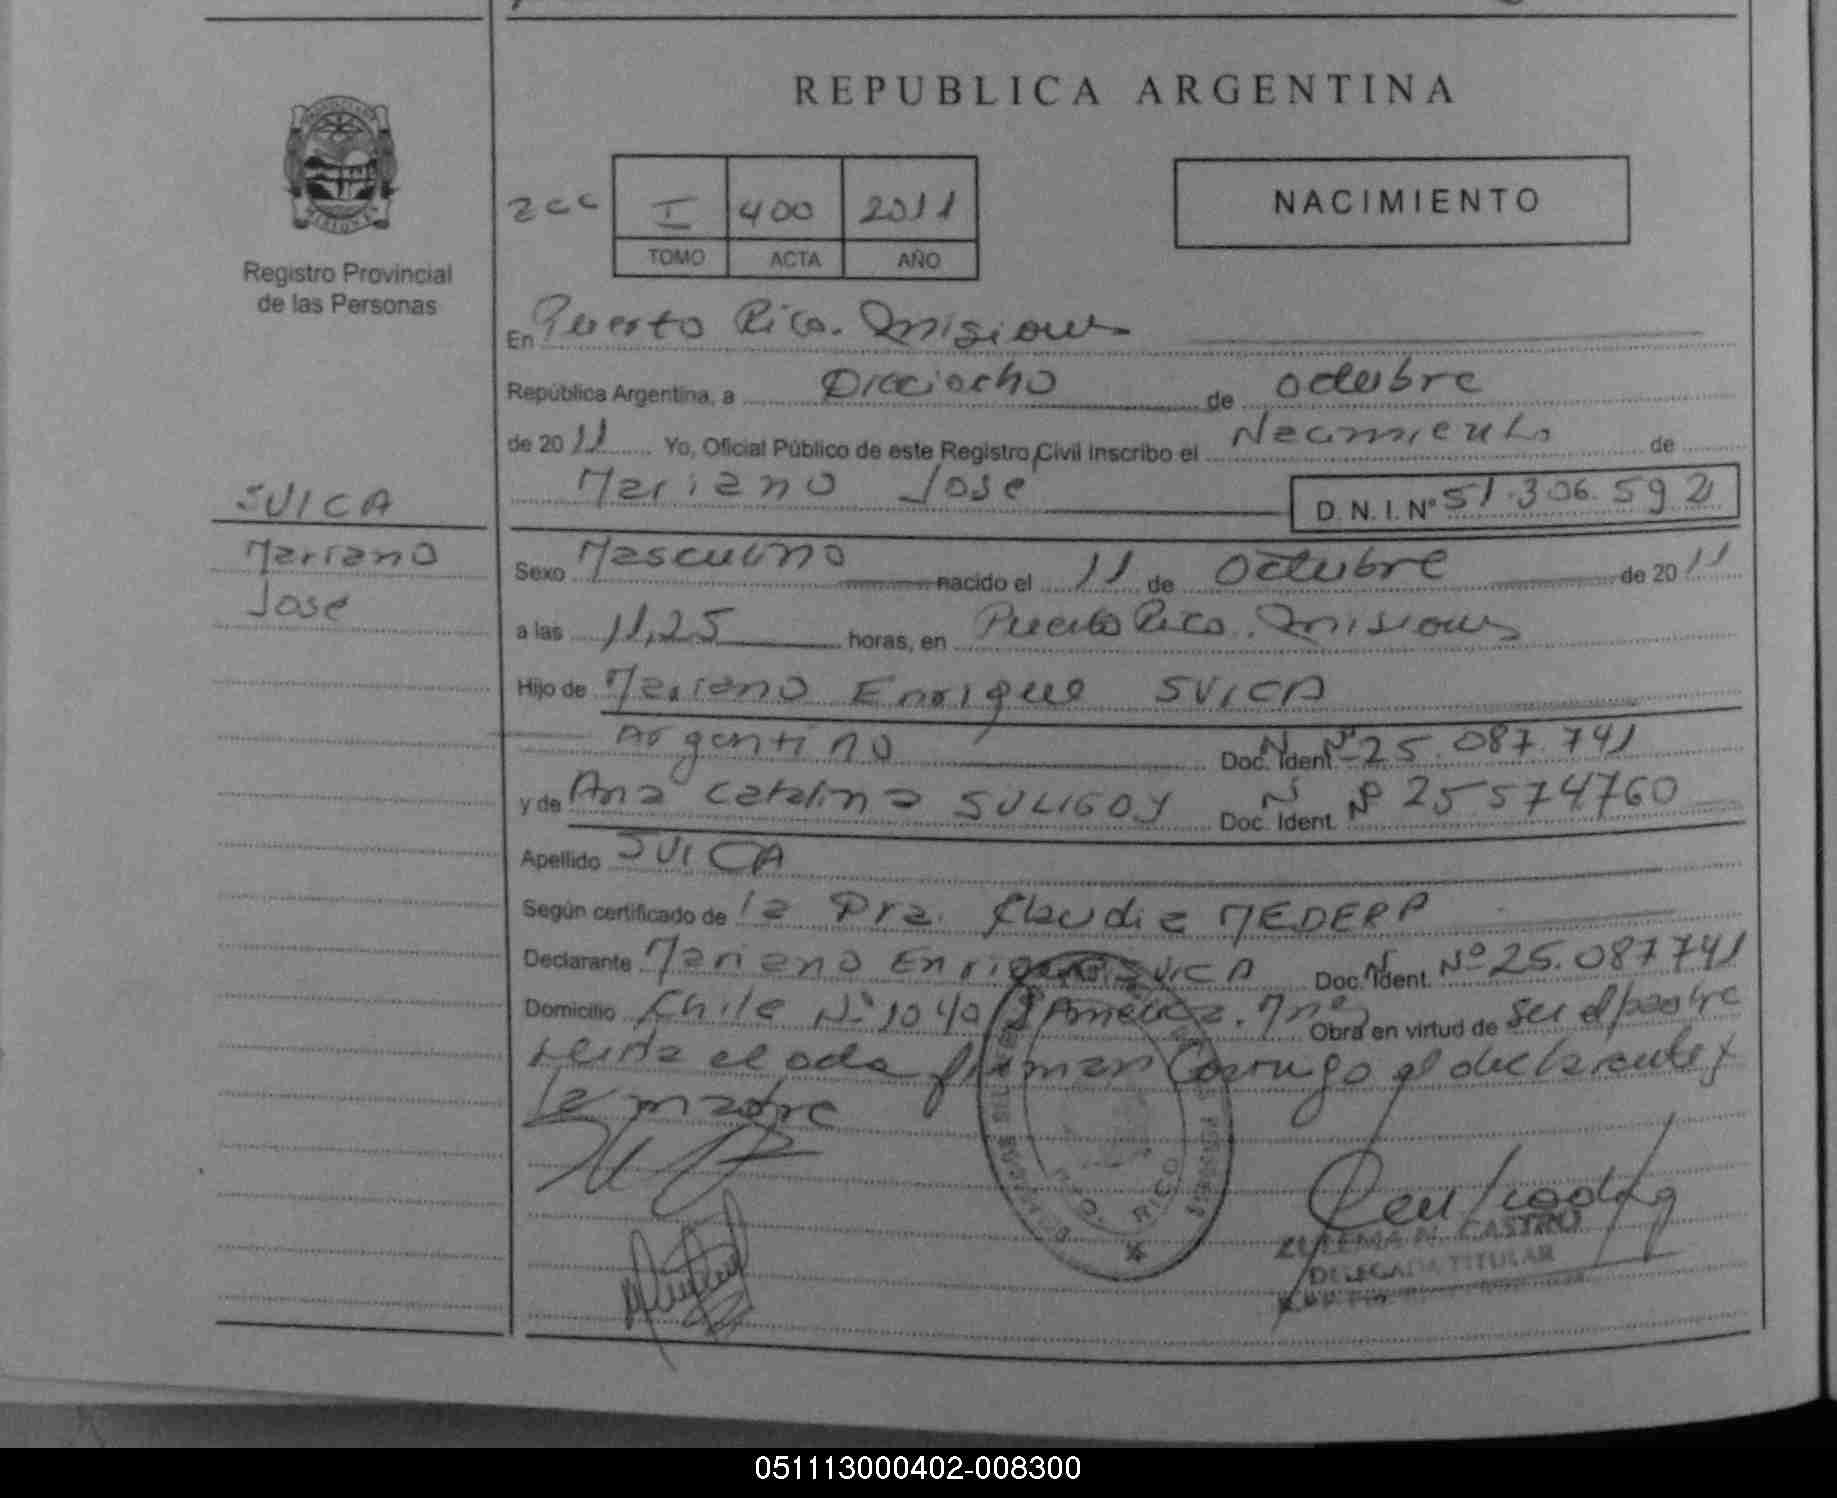 REPUBLICA ARGENTINA
MISIONES
Registro Provincial
de las Personas
I 400 2011
TOMO ACTA AÑO
NACIMIENTO
En Puerto Rico. Misiones
República Argentina, a Dieciocho de octubre
de 2011 Yo, Oficial Público de este Registro Civil inscribo el Nacimiento de
Mariano Jose
D. N. I. Nº 51.306.592
SVICA
Mariano
Jose
Sexo Masculino nacido el 11 de Octubre de 2011
a las 11,25 horas, en Puerto Rico. Misiones
Hijo de Mariano Enrique SVICA
Argentino Doc. N. Ident. Nº 25.087.741
y de Ana Catalina SULIGOY Doc. N. Ident. Nº 25574760
Apellido SVICA
Según certificado de la Dra. Claudia MEDERA
Declarante Mariano Enrique SVICA Doc. N. Ident. Nº 25.087741
Domicilio Chile Nº 1040 America. Obra en virtud de ser el padre
el acta firman Conmigo el declarante y
la madre
PTO. RICO
ZULEMA N. CASTRO
DELEGADA TITULAR
051113000402-008300